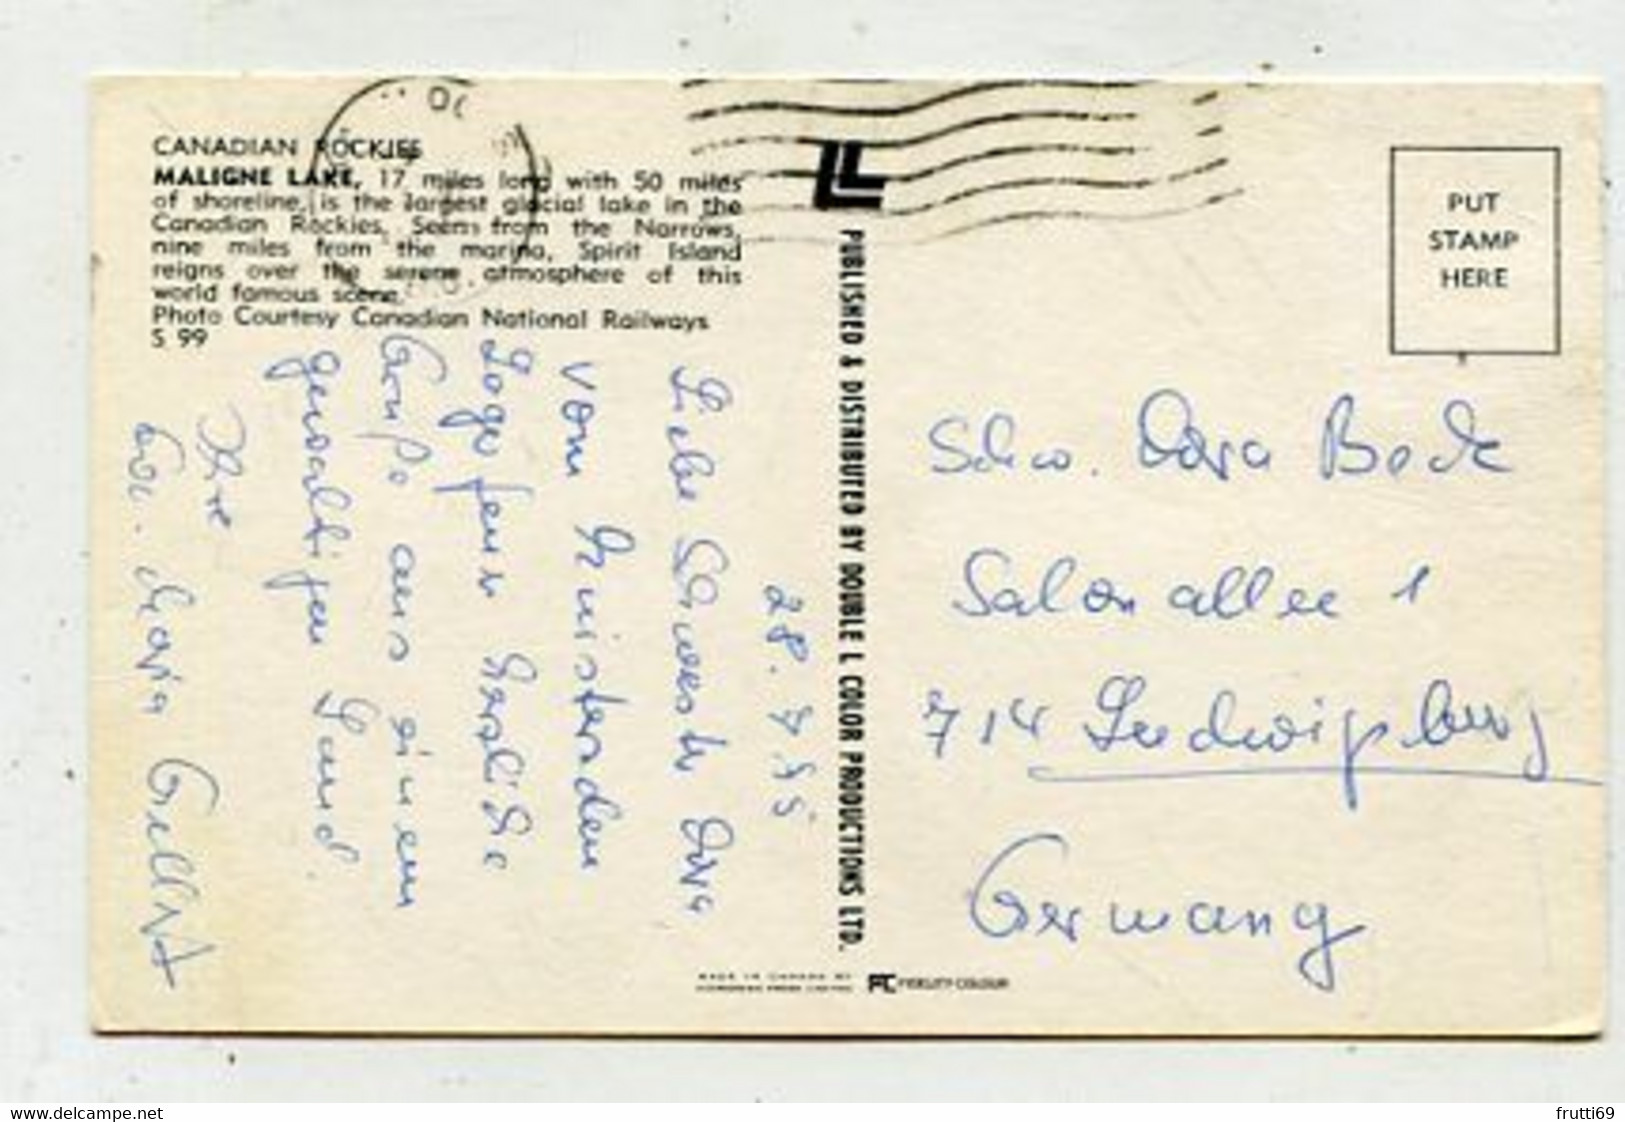 CANADIAN ROCKIES
MALIGNE LAKE, 17 miles long with 50 miles
of shoreline, is the largest glacial lake in the
Canadian Rockies. Seen from the Narrows,
nine miles from the marina, Spirit Island
reigns over the serene atmosphere of this
world famous scene.
Photo Courtesy Canadian National Railways
S 99
28.
Liebe Schwester Dora
vom
herzliche
Grüße aus einem
gewaltigen Land.
Ihre
Maria
PUBLISHED & DISTRIBUTED BY DOUBLE L COLOR PRODUCTIONS LTD.
PUT
STAMP
HERE
Schw. Dora Beck
Salonallee 1
714 Ludwigsburg
Germany
MADE IN CANADA BY
FC FIDELITY COLOUR
www.delcampe.net
frutti69